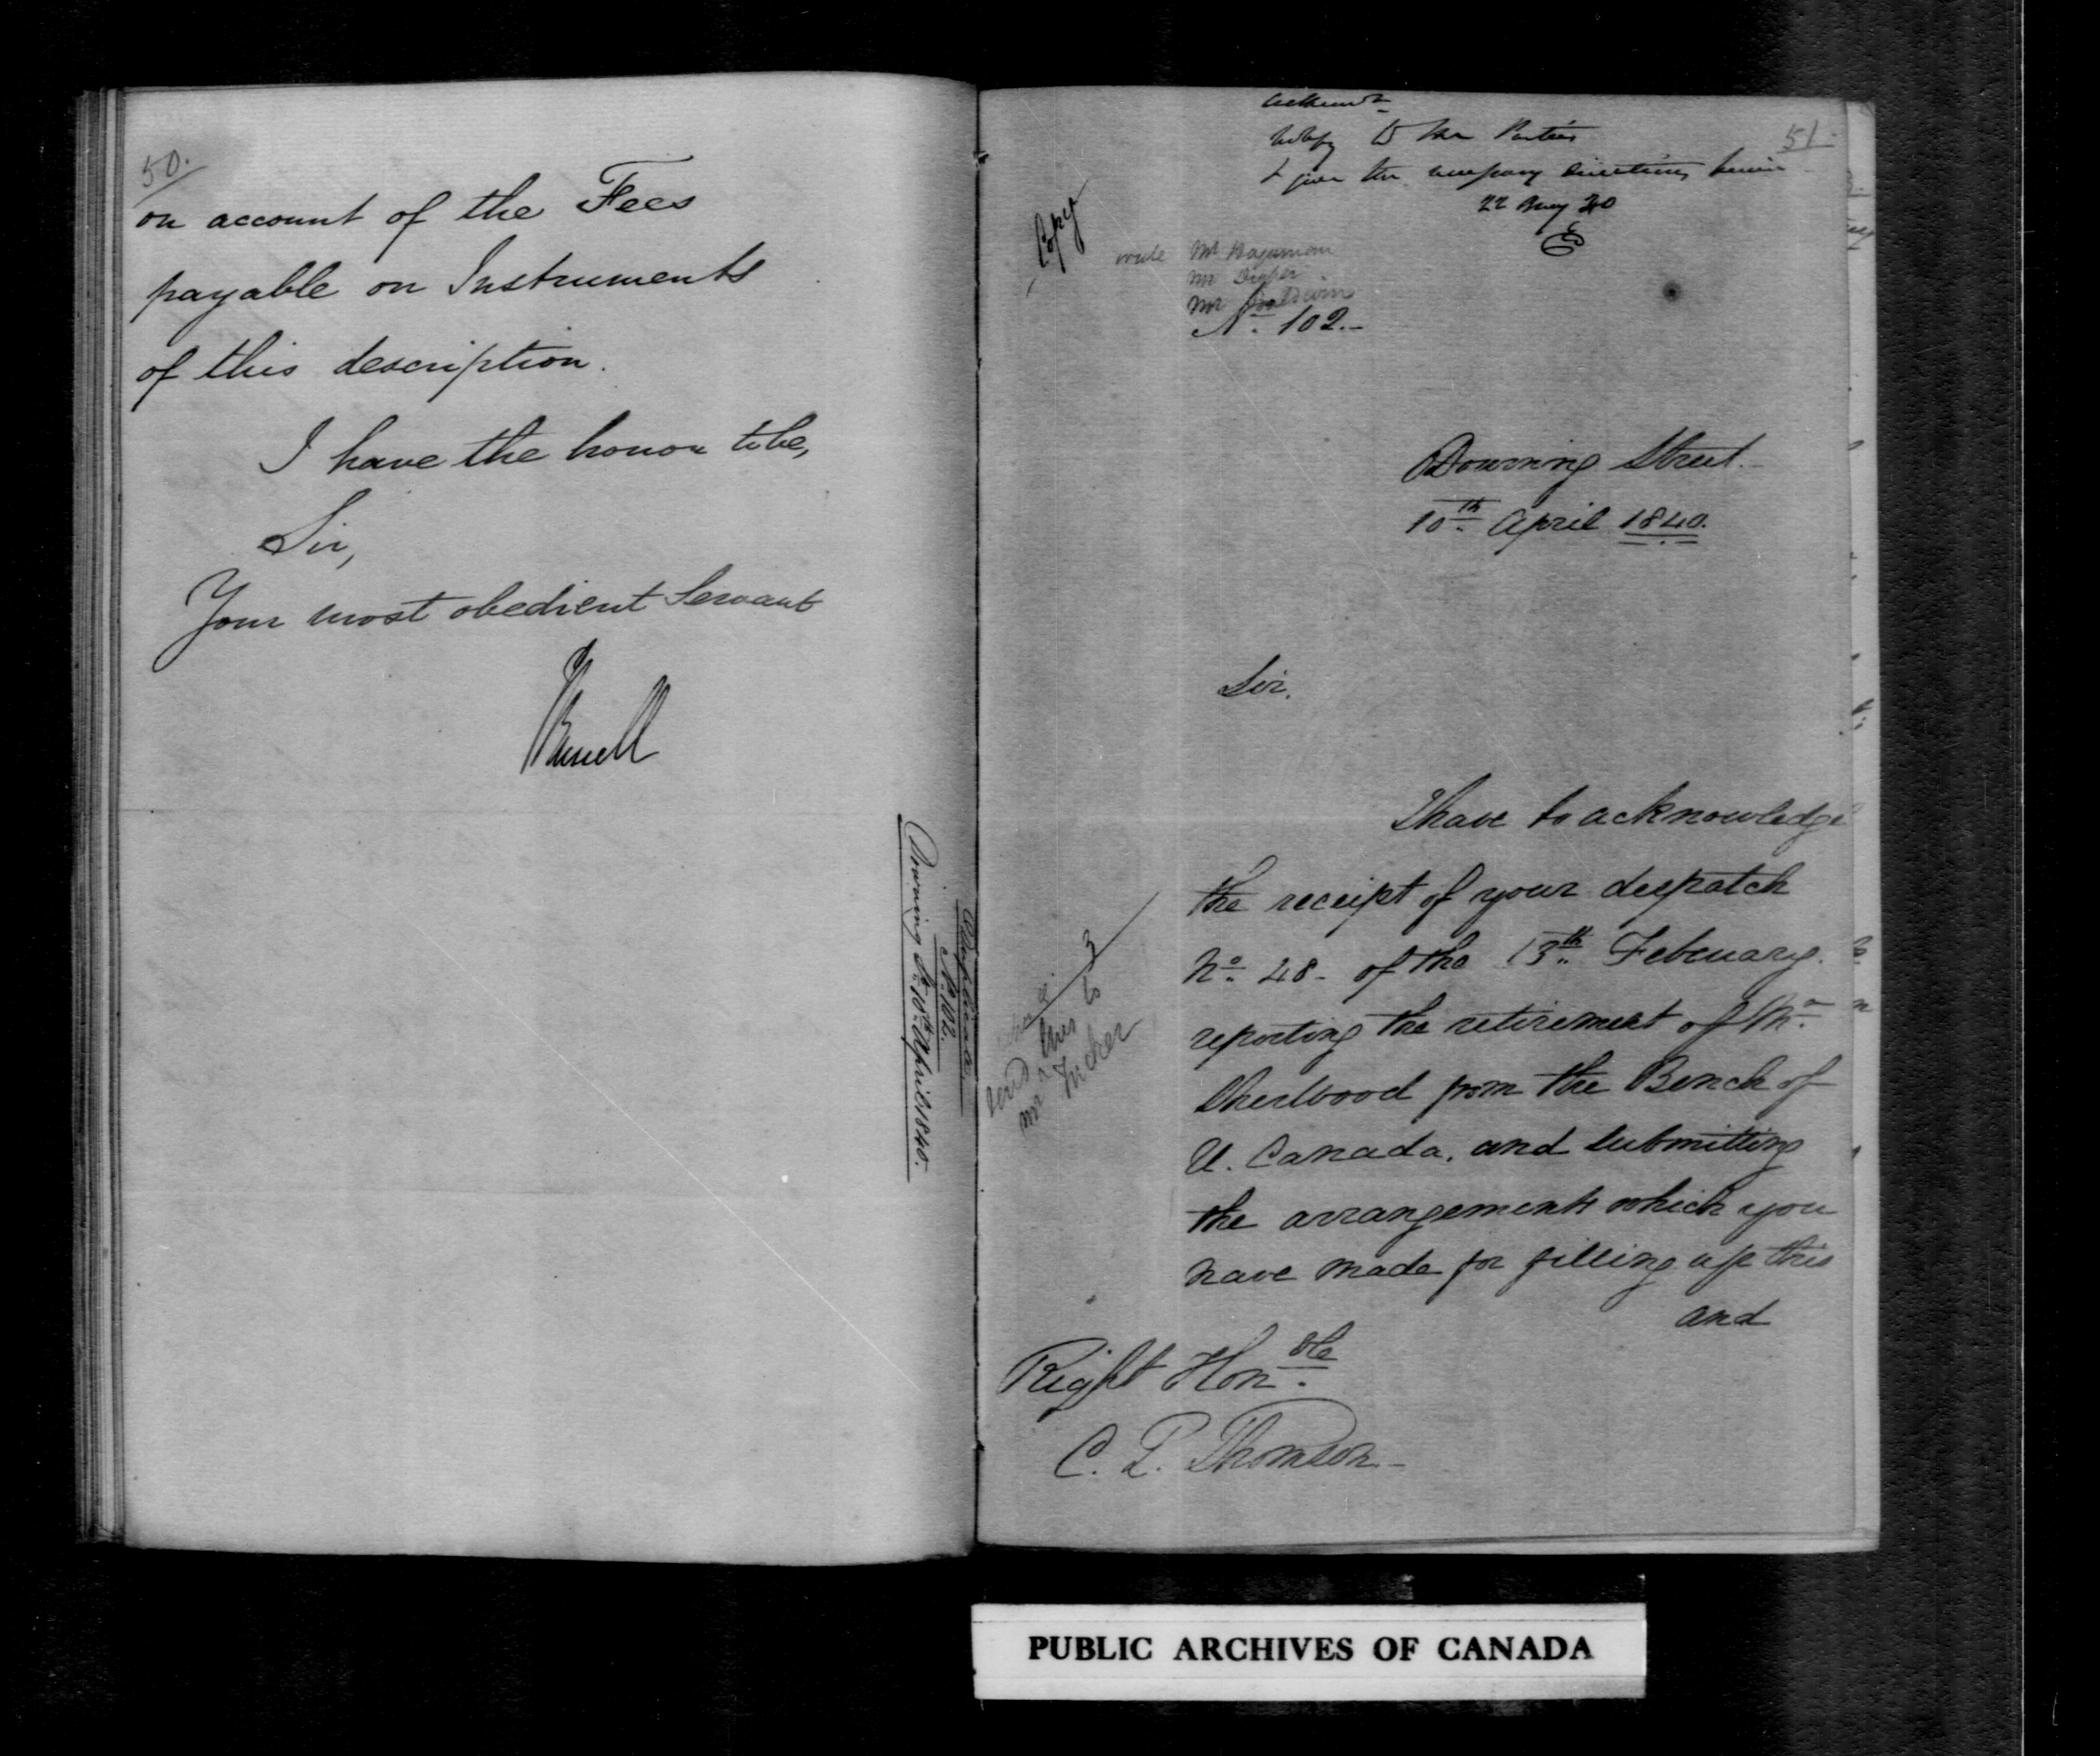 50.
on account of the Fees
payable on Instruments
of this description.
I have the honor to be,
Sir,
Your most obedient Servant
JRussell
Duplicate.
No. 102.
Downing St. 10th April 1840.
51.
Notify to the Parties
& give the necessary directions
22 40
Copy
write Mr Hagerman
Mr Draper
Mr Baldwin
No. 102.-
Downing Street.-
10th April 1840.
Sir.
I have to acknowledge
the receipt of your despatch
No. 48- of the 13th February.
reporting the retirement of Mr.
Sherwood from the Bench of
U. Canada, and submitting
the arrangements which you
have made for filling up this
and
send this to
Mr Tucker
Right Honble
C. P. Thomson-
PUBLIC ARCHIVES OF CANADA